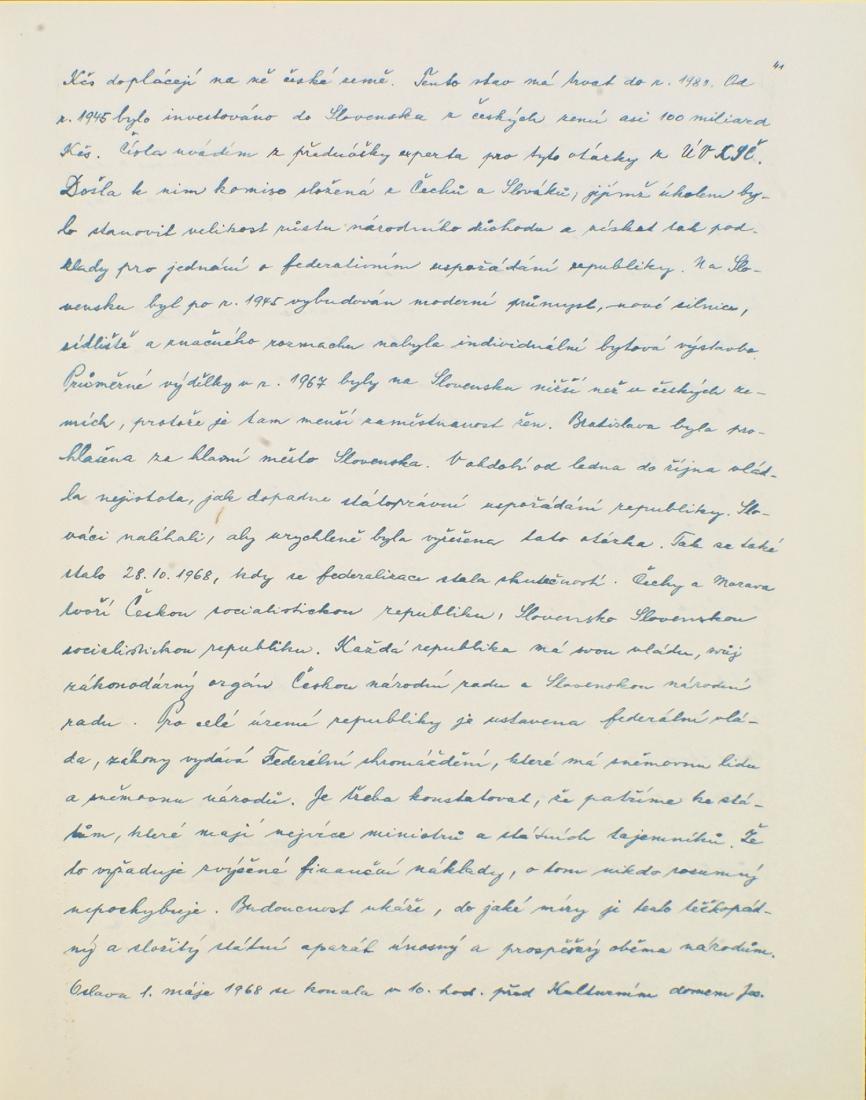 41
Kčs doplácejí na ně české země. Tento stav má trvat do r. 1989. Od
r. 1945 bylo investováno do Slovenska z českých zemí asi 100 miliard
Kčs. Čísla uvádím z přednášky experta pro tyto otázky z ÚV KSČ.
Došla k nim komise složená z Čechů a Slováků, jejímž úkolem by-
lo stanovit velikost růstu národního důchodu a získat tak pod-
klady pro jednání o federativním uspořádání republiky. Na Slo-
vensku byl po r. 1945 vybudován moderní průmysl, nové silnice,
sídliště a značného rozmachu nabyla individuální bytová výstavba.
Průměrné výdělky v r. 1967 byly na Slovensku nižší než v českých ze-
mích, protože je tam menší zaměstnanost žen. Bratislava byla pro-
hlášena za hlavní město Slovenska. V období od ledna do října vlád-
la nejistota, jak dopadne státoprávní uspořádání republiky. Slo-
váci naléhali, aby urychleně byla vyřešena tato otázka. Tak se také
stalo 28.10.1968, kdy se federalizace stala skutečností. Čechy a Morava
tvoří Českou socialistickou republiku, Slovensko Slovenskou
socialistickou republiku. Každá republika má svou vládu, svůj
zákonodárný orgán Českou národní radu a Slovenskou národní
radu. Pro celé území republiky je ustavena federální vlá-
da, zákony vydává Federální shromáždění, které má sněmovnu lidu
a sněmovnu národů. Je třeba konstatovat, že patříme ke stá-
tům, které mají nejvíce ministrů a státních tajemníků. Že
to vyžaduje zvýšené finanční náklady, o tom nikdo rozumný
nepochybuje. Budoucnost ukáže, do jaké míry je tento těžkopád-
ný a složitý státní aparát únosný a prospěšný oběma národům.
Oslava 1. máje 1968 se konala v 10. hod. před Kulturním domem Jos.